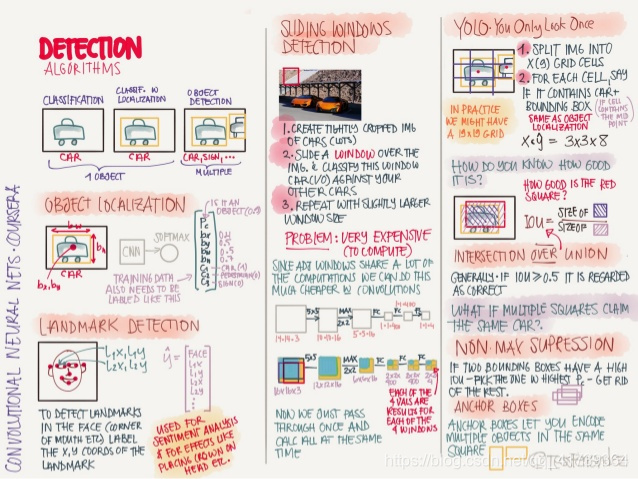 CONVOLUTIONAL NEURAL NETS · COURSERA
DETECTION
ALGORITHMS
CLASSIFICATION
CLASSIF. W
LOCALIZATION
OBJECT
DETECTION
CAR
CAR
CAR, SIGN, ...
1 OBJECT
MULTIPLE
OBJECT LOCALIZATION
IS IT AN
OBJECT (0,1)
bw
bh
CAR
CNN
SOFTMAX
TRAINING DATA
ALSO NEEDS TO BE
LABLED LIKE THIS
LANDMARK DETECTION
l1x, l1y
l2x, l2y
ŷ =
FACE
l1x
l1y
l2x
l2y
TO DETECT LANDMARKS
IN THE FACE (CORNER
OF MOUTH ETC) LABEL
THE X,Y COORDS OF THE
LANDMARK
USED FOR
SENTIMENT ANALYSIS
& FOR EFFECTS LIKE
PLACING CROWN ON
HEAD ETC.
SLIDING WINDOWS
DETECTION
1. CREATE TIGHTLY CROPPED IMG
OF CARS (CUTS)
2. SLIDE A WINDOW OVER THE
IMG. & CLASSIFY THIS WINDOW
CAR (1/0) AGAINST YOUR
OTHER CARS
3. REPEAT WITH SLIGHTLY LARGER
WINDOW SIZE
PROBLEM: VERY EXPENSIVE
(TO COMPUTE)
SINCE ADJ WINDOWS SHARE A LOT OF
THE COMPUTATIONS WE CAN DO THIS
MUCH CHEAPER W CONVOLUTIONS
5x5
MAX
2x2
FC
FC
14×14×3
10×10×16
5x5
MAX
2x2
FC
FC
FC
16x16x3
12x12x16
6x6x16
EACH OF THE
4 VALS ARE
RESULTS FOR
EACH OF THE
4 WINDOWS
NOW WE JUST PASS
THROUGH ONCE AND
CALC ALL AT THE SAME
TIME
YOLO: You Only Look Once
1. SPLIT IMG INTO
X (9) GRID CELLS
2. FOR EACH CELL, SAY
IF IT CONTAINS CAR +
BOUNDING BOX
(IF CELL
CONTAINS
THE MID
POINT)
SAME AS OBJECT
LOCALIZATION
IN PRACTICE
WE MIGHT HAVE
A 19x19 GRID
= 3x3x8
HOW DO YOU KNOW HOW GOOD
IT IS?
HOW GOOD IS THE RED
SQUARE?
IOU =
SIZE OF
SIZE OF
INTERSECTION OVER UNION
GENERALLY · IF IOU ≥ 0.5 IT IS REGARDED
AS CORRECT
WHAT IF MULTIPLE SQUARES CLAIM
THE SAME CAR?
NON-MAX SUPRESSION
IF TWO BOUNDING BOXES HAVE A HIGH
IOU - PICK THE ONE W HIGHEST Pc - GET RID
OF THE REST.
ANCHOR BOXES
ANCHOR BOXES LET YOU ENCODE
MULTIPLE OBJECTS IN THE SAME
SQUARE